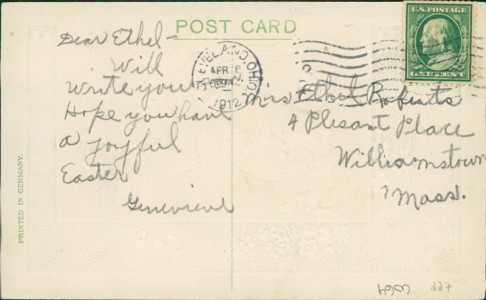 POST CARD
U.S. POSTAGE
ONE CENT
CLEVELAND, OHIO
APR 5
1912
Dear Ethel -
Will
write you
Hope you have
a joyful
Easter
Genevieve
Miss Ethel Roberts
4 Plesant Place
Williamstown
Mass.
PRINTED IN GERMANY.
227